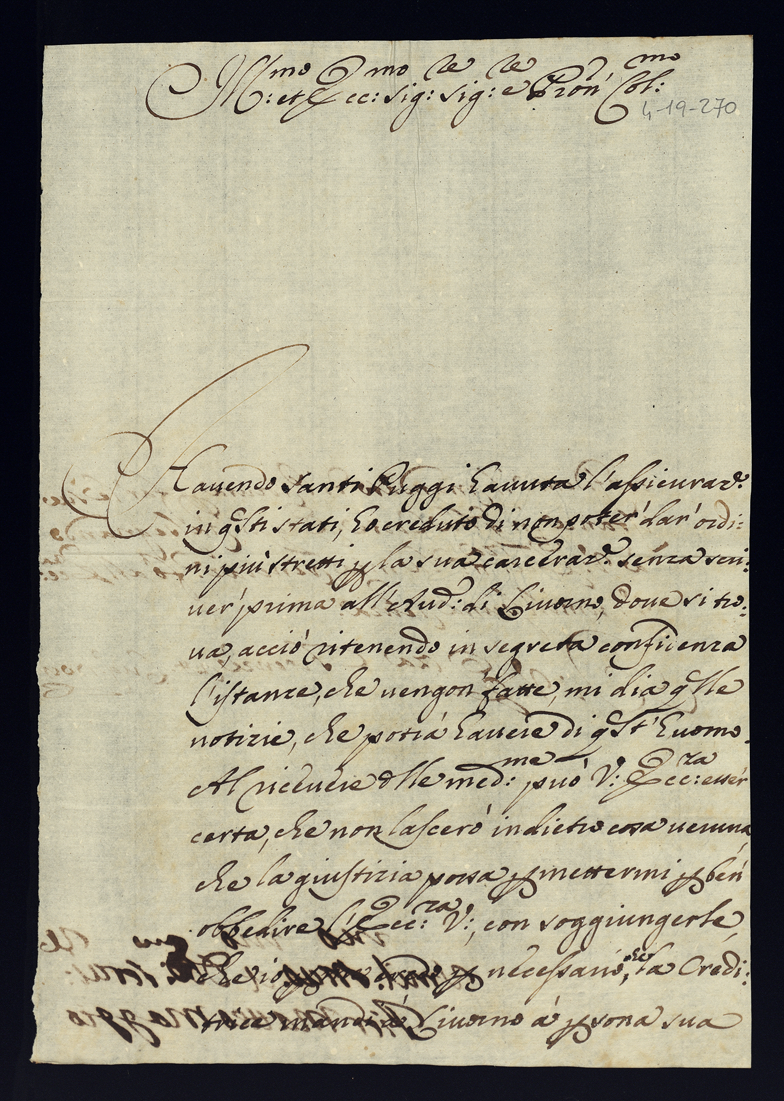 Ill:mo et Ecc:mo Sig:re Sig:re e Pron Col:mo
4-19-270
Havendo Santi Puggi havuta l'assicuraz:e
in q.sti stati, ho creduto di non poter' dar' ordi:
ni più stretti p la sua carceraz:e senza scri:
ver' prima all' Aud:e di Livorno, dove si tro:
va, acciò ritenendo in segreta confidenza
l'istanze, che vengon fatte, mi dia q.lle
notizie, che potrà havere di q.st' huomo.
Al ricevere d.lle med:me può V: Ecc:za esser
certa, che non lascerò indietro cosa veruna
che la giustizia possa pmettermi p ben
obbedire l'Ecc:za V:, con soggiungerle,
che io necessario, che la Credi:
trice mandi à Livorno à psona sua